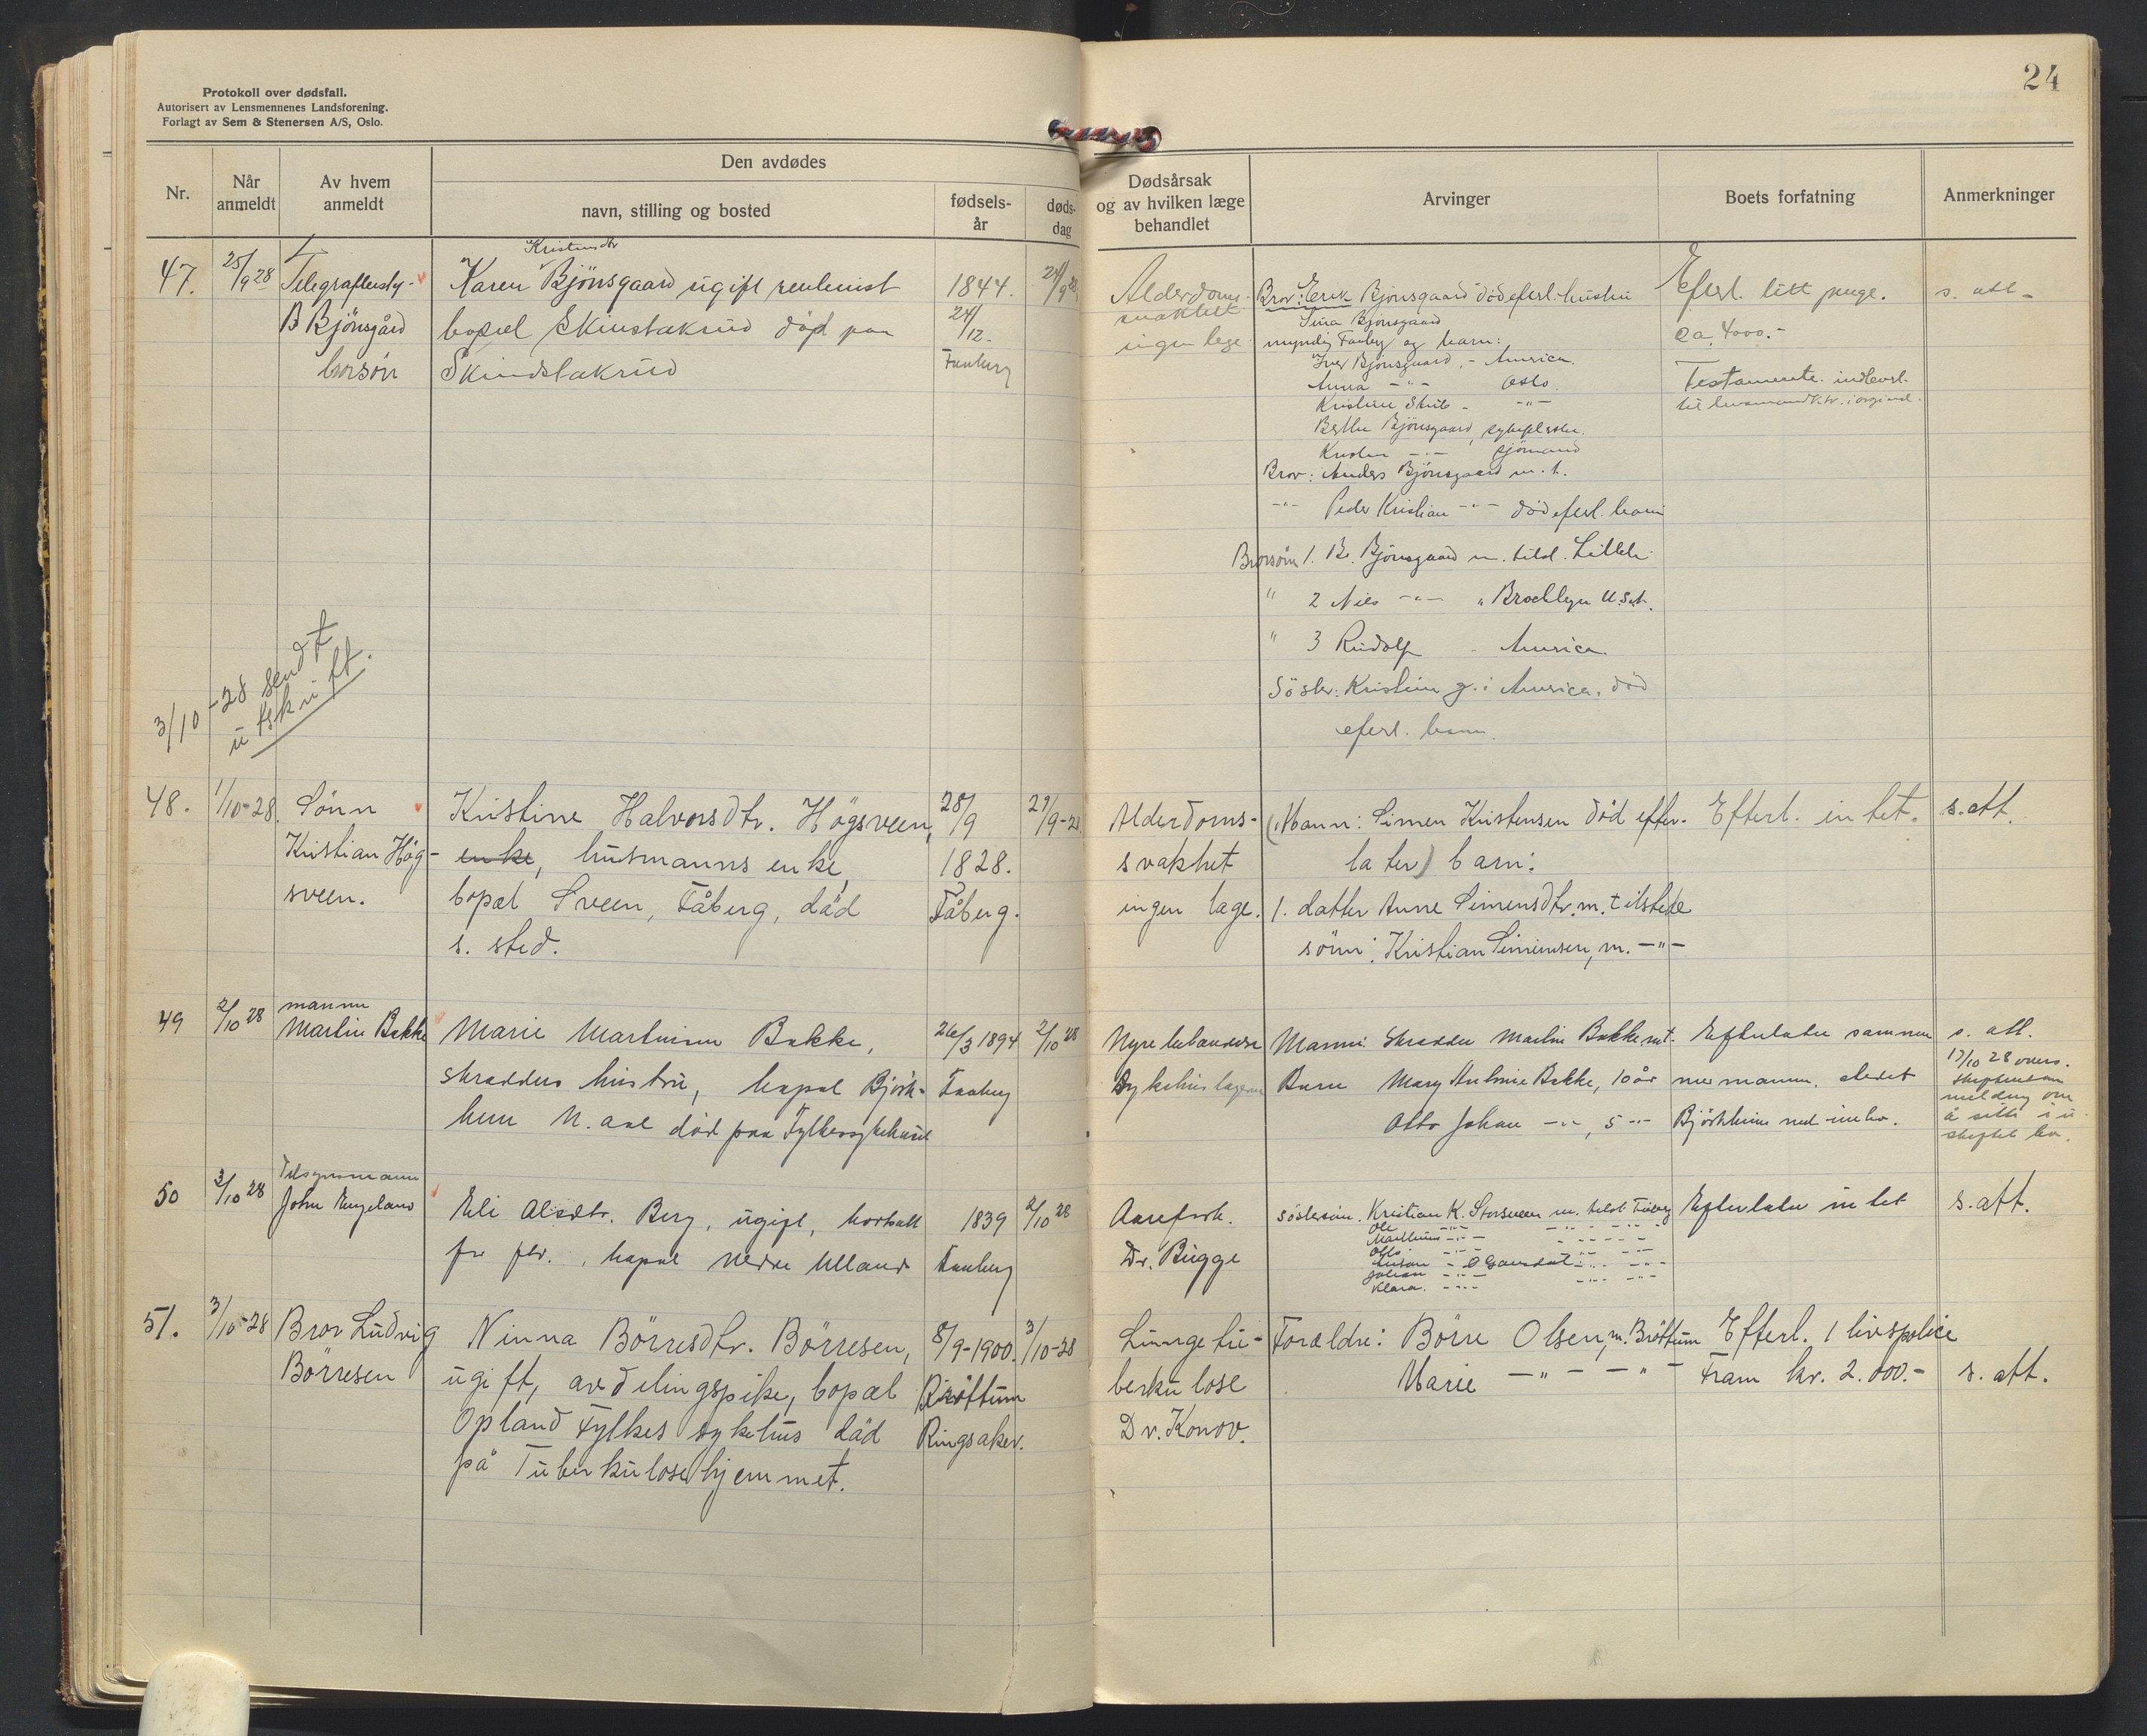 Protokoll over dødsfall.
Autorisert av Lensmennenes Landsforening.
Forlagt av Sem & Stenersen A/S, Oslo.
24
Nr.
Når anmeldt
Av hvem anmeldt
Den avdødes
navn, stilling og bosted
fødsels-år
døds-dag
Dødsårsak og av hvilken læge behandlet
Arvinger
Boets forfatning
Anmerkninger
47.
25/9 28
Telegrafbesty-
B Bjönsgård
brorsön
Kristensdtr
Karen Bjönsgaard ugift rentenist
bopæl Skinstakrud död paa
Skindstakrud
1844.
24/12.
Faaberg
24/9 28
Alderdoms-
svakhet
ingen lege
Bror: Erik Bjönsgaard död efterl. hustru
Sina Bjönsgaard
myndig Faaberg og barn:
Iver Bjönsgaard, - America.
Anna -"- Oslo.
Kristine -"-
Berthe Bjönsgaard, sykepleske.
Kristen -"- sjömand
Bror: Anders Bjönsgaard m. t.
-"- Peder Kristian -"- död efterl. barn
Brorsön 1. B. Bjönsgaard m. tilst. Lilleh.
" 2 Nils -"- " Brooklyn U.S.A.
" 3 Rudolf - America.
Söster: Kristine g. i America, död
efterl. barn.
Efterl. litt penge.
ca. 4000.-
Testamente indlevert
s. att.
3/10-28 sendt
utskrift.
48.
1/10-28.
Sönn
Kristian Hög-
sveen.
Kristine Halvorsdtr. Högsveen,
enke, husmanns enke,
bopæl Sveen, Fåberg, död
s. sted.
28/9
1828.
Fåberg.
29/9-28
Alderdoms-
svakhet
ingen læge.
(Mann: Simen Kristensen död efter-
later) barn:
1. datter Anne Simensdtr. m. tilstede
sönn: Kristian Simensen, m. -"-
Efterl. intet.
s. att.
49
2/10 28
mannen
Martin Bakke
Marie Martinsen Bakke,
skredders hustru, bopæl Björk-
heim N. Aal död paa Fylkessykehuset
26/3 1894
Faaberg
2/10 28
Nyrebetændelse
Sykehuslægen
Mannen: Skredder Martin Bakke m.t.
Barn Mary Antonie Bakke, 10 år
Otto Johan -"-, 5 -"-
Efterlater sammen
med mannen,
Björkheim med innbo.
s. att.
17/10 28 overs.
melding om
å sitte i u
skiftet bo.
50
3/10 28
Tilsynsmann
John Engeland
Eli Olsdtr. Berg, ugift, bortsatt
for flv., bopæl nedre Ulland
1839
Faaberg
2/10 28
Aarefork.
Dr. Bugge
Söstersön. Kristian K. Storsveen m. tilst. Faaberg
Ole -"-
Mathias -"-
Otto -"-
Anton - Ø Gausdal -"-
Johan -"-
Klara. -"-
Efterlater intet
s. att.
51.
3/10-28
Bror Ludvig
Börresen
Ninna Börresdtr. Börresen,
ugift, avdelingspike, bopæl
Opland Fylkes sykehus död
på Tuberkulosehjemmet.
8/9-1900.
Bröttum
Ringsaker.
3/10-28
Lungetu-
berkulose
Dr. Konov.
Forældre: Börre Olsen, m. Bröttum
Marie -"- -"-
Efterl. 1 livspolice
Fram kr. 2.000.-
s. att.